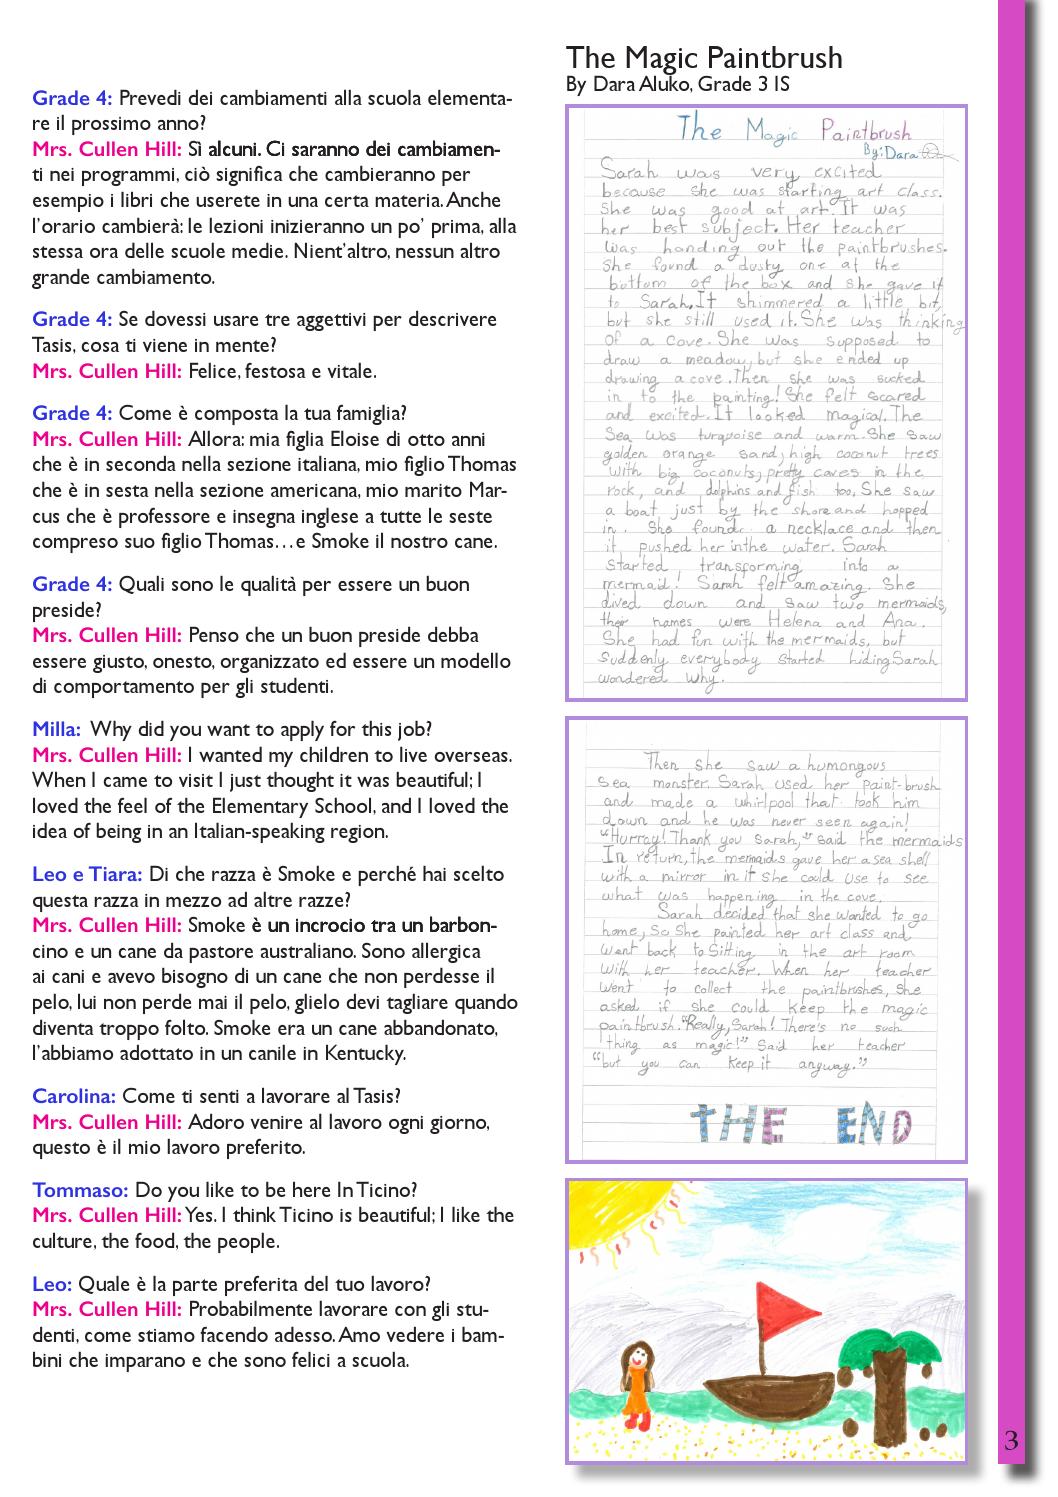 Grade 4: Prevedi dei cambiamenti alla scuola elementa-
re il prossimo anno?
Mrs. Cullen Hill: Sì alcuni. Ci saranno dei cambiamen-
ti nei programmi, ciò significa che cambieranno per
esempio i libri che userete in una certa materia. Anche
l'orario cambierà: le lezioni inizieranno un po' prima, alla
stessa ora delle scuole medie. Nient'altro, nessun altro
grande cambiamento.
Grade 4: Se dovessi usare tre aggettivi per descrivere
Tasis, cosa ti viene in mente?
Mrs. Cullen Hill: Felice, festosa e vitale.
Grade 4: Come è composta la tua famiglia?
Mrs. Cullen Hill: Allora: mia figlia Eloise di otto anni
che è in seconda nella sezione italiana, mio figlio Thomas
che è in sesta nella sezione americana, mio marito Mar-
cus che è professore e insegna inglese a tutte le seste
compreso suo figlio Thomas…e Smoke il nostro cane.
Grade 4: Quali sono le qualità per essere un buon
preside?
Mrs. Cullen Hill: Penso che un buon preside debba
essere giusto, onesto, organizzato ed essere un modello
di comportamento per gli studenti.
Milla: Why did you want to apply for this job?
Mrs. Cullen Hill: I wanted my children to live overseas.
When I came to visit I just thought it was beautiful; I
loved the feel of the Elementary School, and I loved the
idea of being in an Italian-speaking region.
Leo e Tiara: Di che razza è Smoke e perché hai scelto
questa razza in mezzo ad altre razze?
Mrs. Cullen Hill: Smoke è un incrocio tra un barbon-
cino e un cane da pastore australiano. Sono allergica
ai cani e avevo bisogno di un cane che non perdesse il
pelo, lui non perde mai il pelo, glielo devi tagliare quando
diventa troppo folto. Smoke era un cane abbandonato,
l'abbiamo adottato in un canile in Kentucky.
Carolina: Come ti senti a lavorare al Tasis?
Mrs. Cullen Hill: Adoro venire al lavoro ogni giorno,
questo è il mio lavoro preferito.
Tommaso: Do you like to be here In Ticino?
Mrs. Cullen Hill: Yes. I think Ticino is beautiful; I like the
culture, the food, the people.
Leo: Quale è la parte preferita del tuo lavoro?
Mrs. Cullen Hill: Probabilmente lavorare con gli stu-
denti, come stiamo facendo adesso. Amo vedere i bam-
bini che imparano e che sono felici a scuola.
The Magic Paintbrush
By Dara Aluko, Grade 3 IS
The Magic Paintbrush
By: Dara
Sarah was very excited
because she was starting art class.
She was good at art. It was
her best subject. Her teacher
was handing out the paintbrushes.
She found a dusty one at the
bottom of the box and she gave it
to Sarah. It shimmered a little bit,
but she still used it. She was thinking
of a cove. She was supposed to
draw a meadow, but she ended up
drawing a cove. Then she was sucked
in to the painting! She felt scared
and excited. It looked magical. The
Sea was turquoise and warm. She saw
golden orange sand, high coconut trees
with big coconuts, pretty caves in the
rock, and dolphins and fish too. She saw
a boat just by the shore and hopped
in. She found a necklace and then
it pushed her in the water. Sarah
started transforming into a
mermaid! Sarah felt amazing. She
dived down and saw two mermaids,
their names were Helena and Ana.
She had fun with the mermaids, but
Suddenly everybody started hiding. Sarah
wondered why.
Then she saw a humongous
sea monster. Sarah used her paint-brush
and made a whirlpool that took him
down and he was never seen again!
"Hurray! Thank you Sarah," said the mermaids
In return, the mermaids gave her a sea shell
with a mirror in it she could use to see
what was happening in the cove.
Sarah decided that she wanted to go
home, so she painted her art class and
went back to sitting in the art room
with her teacher. When her teacher
went to collect the paintbrushes, she
asked if she could keep the magic
paintbrush. "Really, Sarah! There's no such
thing as magic!" Said her teacher
"but you can keep it anyway."
THE END
3